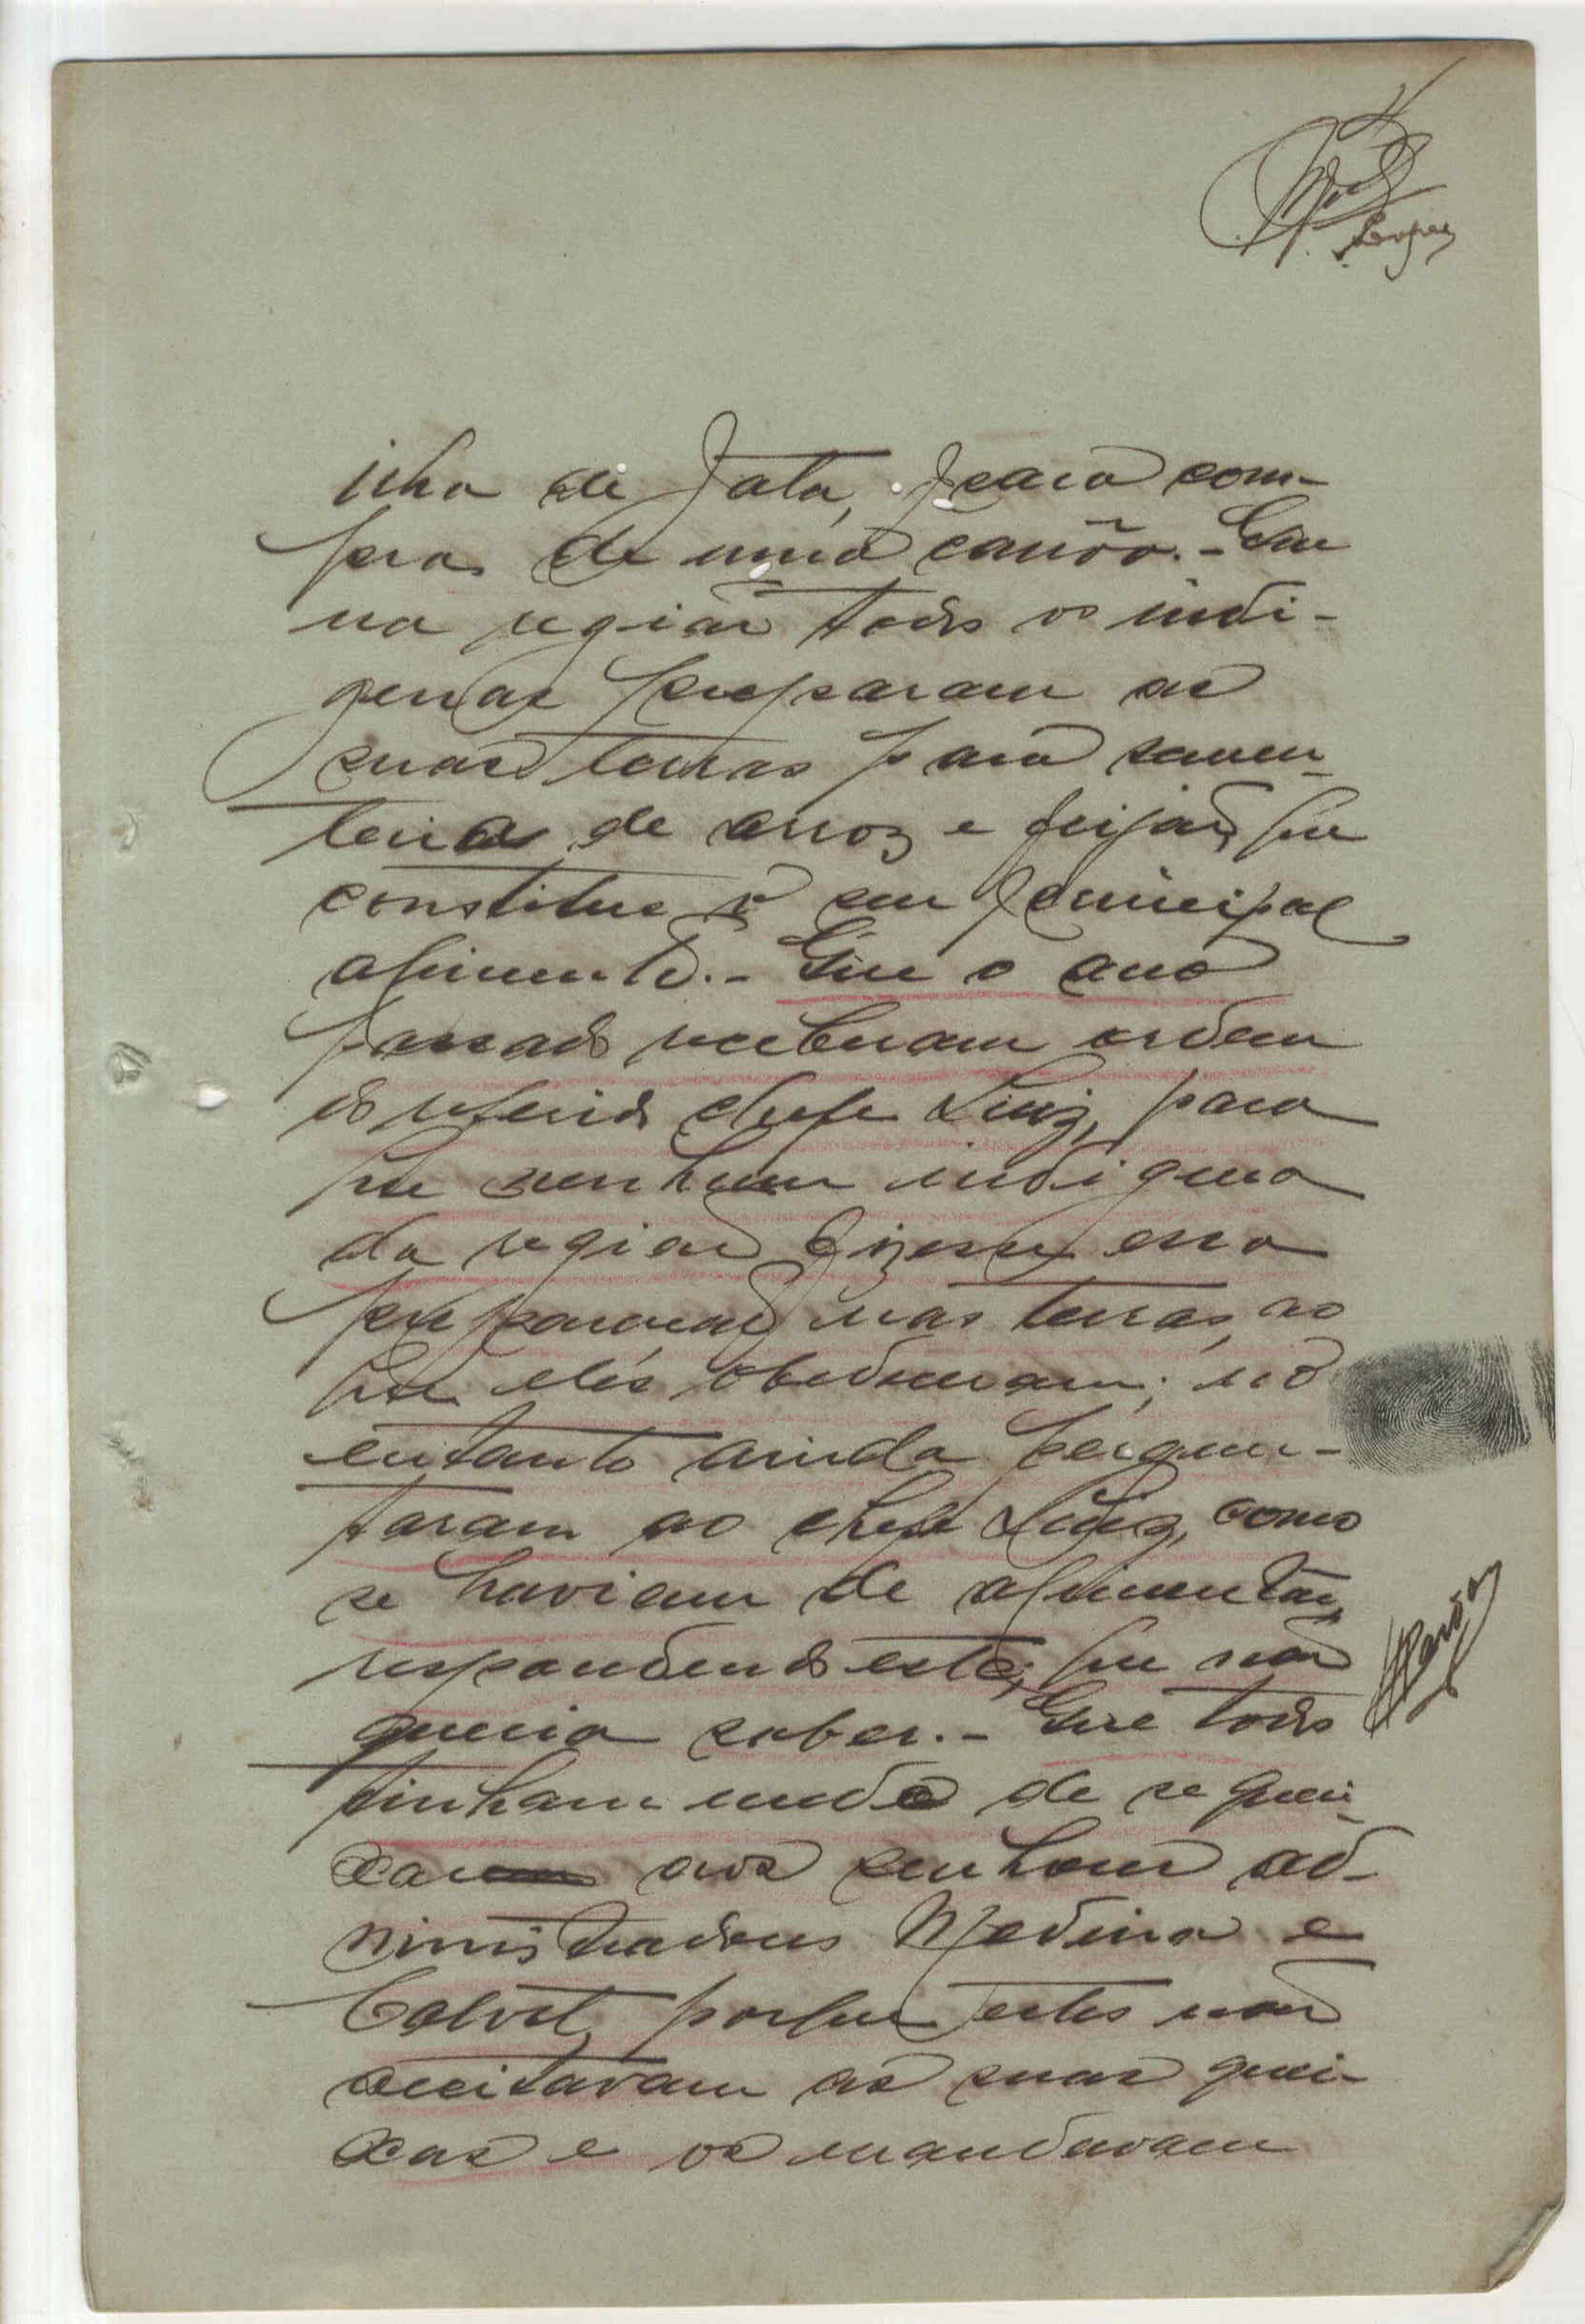 Lopes
ilha de Jata, para com-
pra de uma canôa. - Que
na região todos os indi-
genas preparam as
suas terras para semen-
teira de arroz e feijão, que
constitue o seu principal
alimento. - Que o ano
passado receberam ordem
do referido chefe Luiz, para
que nenhum indigena
da região fizesse essa
preparação nas terras, ao
que eles obedeceram; no
entanto ainda pergun-
taram ao chefe Luiz, como
se haviam de alimentar,
respondendo este, que não
queria saber. - Que todos
tinham medo de se quei-
xar aos senhores ad-
ministradores Medina e
Calvet, porque estes não
aceitavam as suas quei-
xas e os mandavam